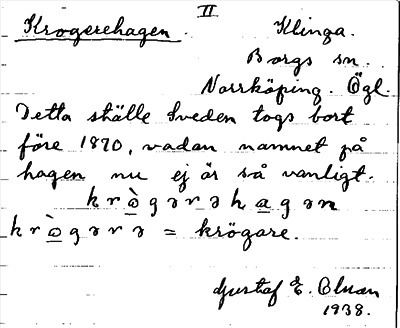 II
Krogerehagen. Klinga.
Borgs sn.
Norrköping. Ögl.
Detta ställe Sveden togs bort
före 1870, vadan namnet på
hagen nu ej är så vanligt.
krògərəhagən
krògərə = krögare.
Gustaf E.
1938.